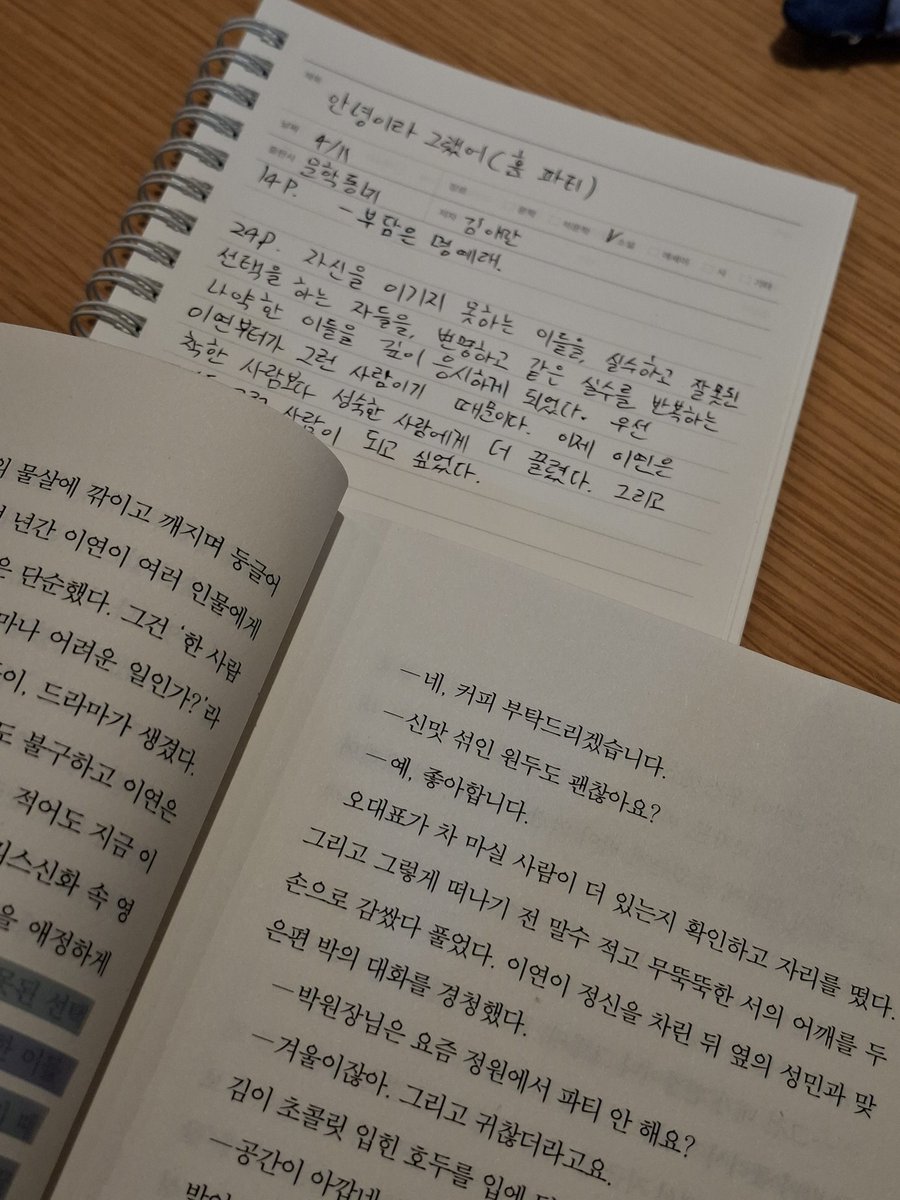 제목
안녕이라 그랬어 (홈 파티)
날짜 4/11 장르 문학 비문학 V 소설 에세이 시 기타
출판사 문학동네 저자 김애란
14P. - 부담은 명예래.
24P. 자신을 이기지 못하는 이들을, 실수하고 잘못된
선택을 하는 자들을, 변명하고 같은 실수를 반복하는
나약한 이들을 깊이 응시하게 되었다. 우선
이연부터가 그런 사람이기 때문이다. 이제 이연은
착한 사람보다 성숙한 사람에게 더 끌렸다. 그리고
사람이 되고 싶었다.
물살에 깎이고 깨지며 둥글어
년간 이연이 여러 인물에게
단순했다. 그건 '한 사람
어려운 일인가?'라
드라마가 생겼다.
불구하고 이연은
적어도 지금 이
속 영
애정하게
선택
—네, 커피 부탁드리겠습니다.
—신맛 섞인 원두도 괜찮아요?
—예, 좋아합니다.
오대표가 차 마실 사람이 더 있는지 확인하고 자리를 떴다.
그리고 그렇게 떠나기 전 말수 적고 무뚝뚝한 서의 어깨를 두
손으로 감쌌다 풀었다. 이연이 정신을 차린 뒤 옆의 성민과 맞
은편 박의 대화를 경청했다.
—박원장님은 요즘 정원에서 파티 안 해요?
—겨울이잖아. 그리고 귀찮더라고요.
김이 초콜릿 입힌 호두를 입에
—공간이 아깝네